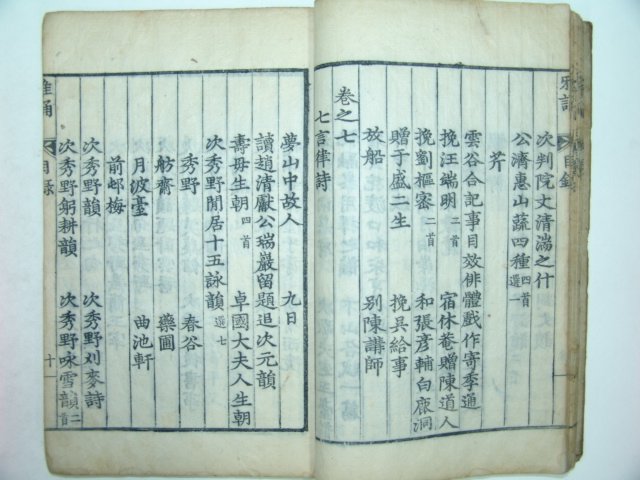 雅誦
目錄
次判院丈清湍之什
公濟惠山蔬四種 四首選一
芹
雲谷合記事目效俳體戲作寄季通
挽汪端明 二首 宿休菴贈陳道人
挽劉樞密 二首 和張彦輔白鹿洞
贈于盛二生 挽吳給事
放船 別陳講師
卷之七
七言律詩
夢山中故人 九日
讀趙清獻公瑞巖留題追次元韻
壽母生朝 四首 卓國大夫人生朝
次秀野閒居十五詠韻 選七
秀野 春谷
舫齋 藥圃
月波臺 曲池軒
前邨梅
次秀野韻 次秀野刈麥詩
次秀野躬耕韻 次秀野咏雪韻 二首
雅誦
目錄
十一